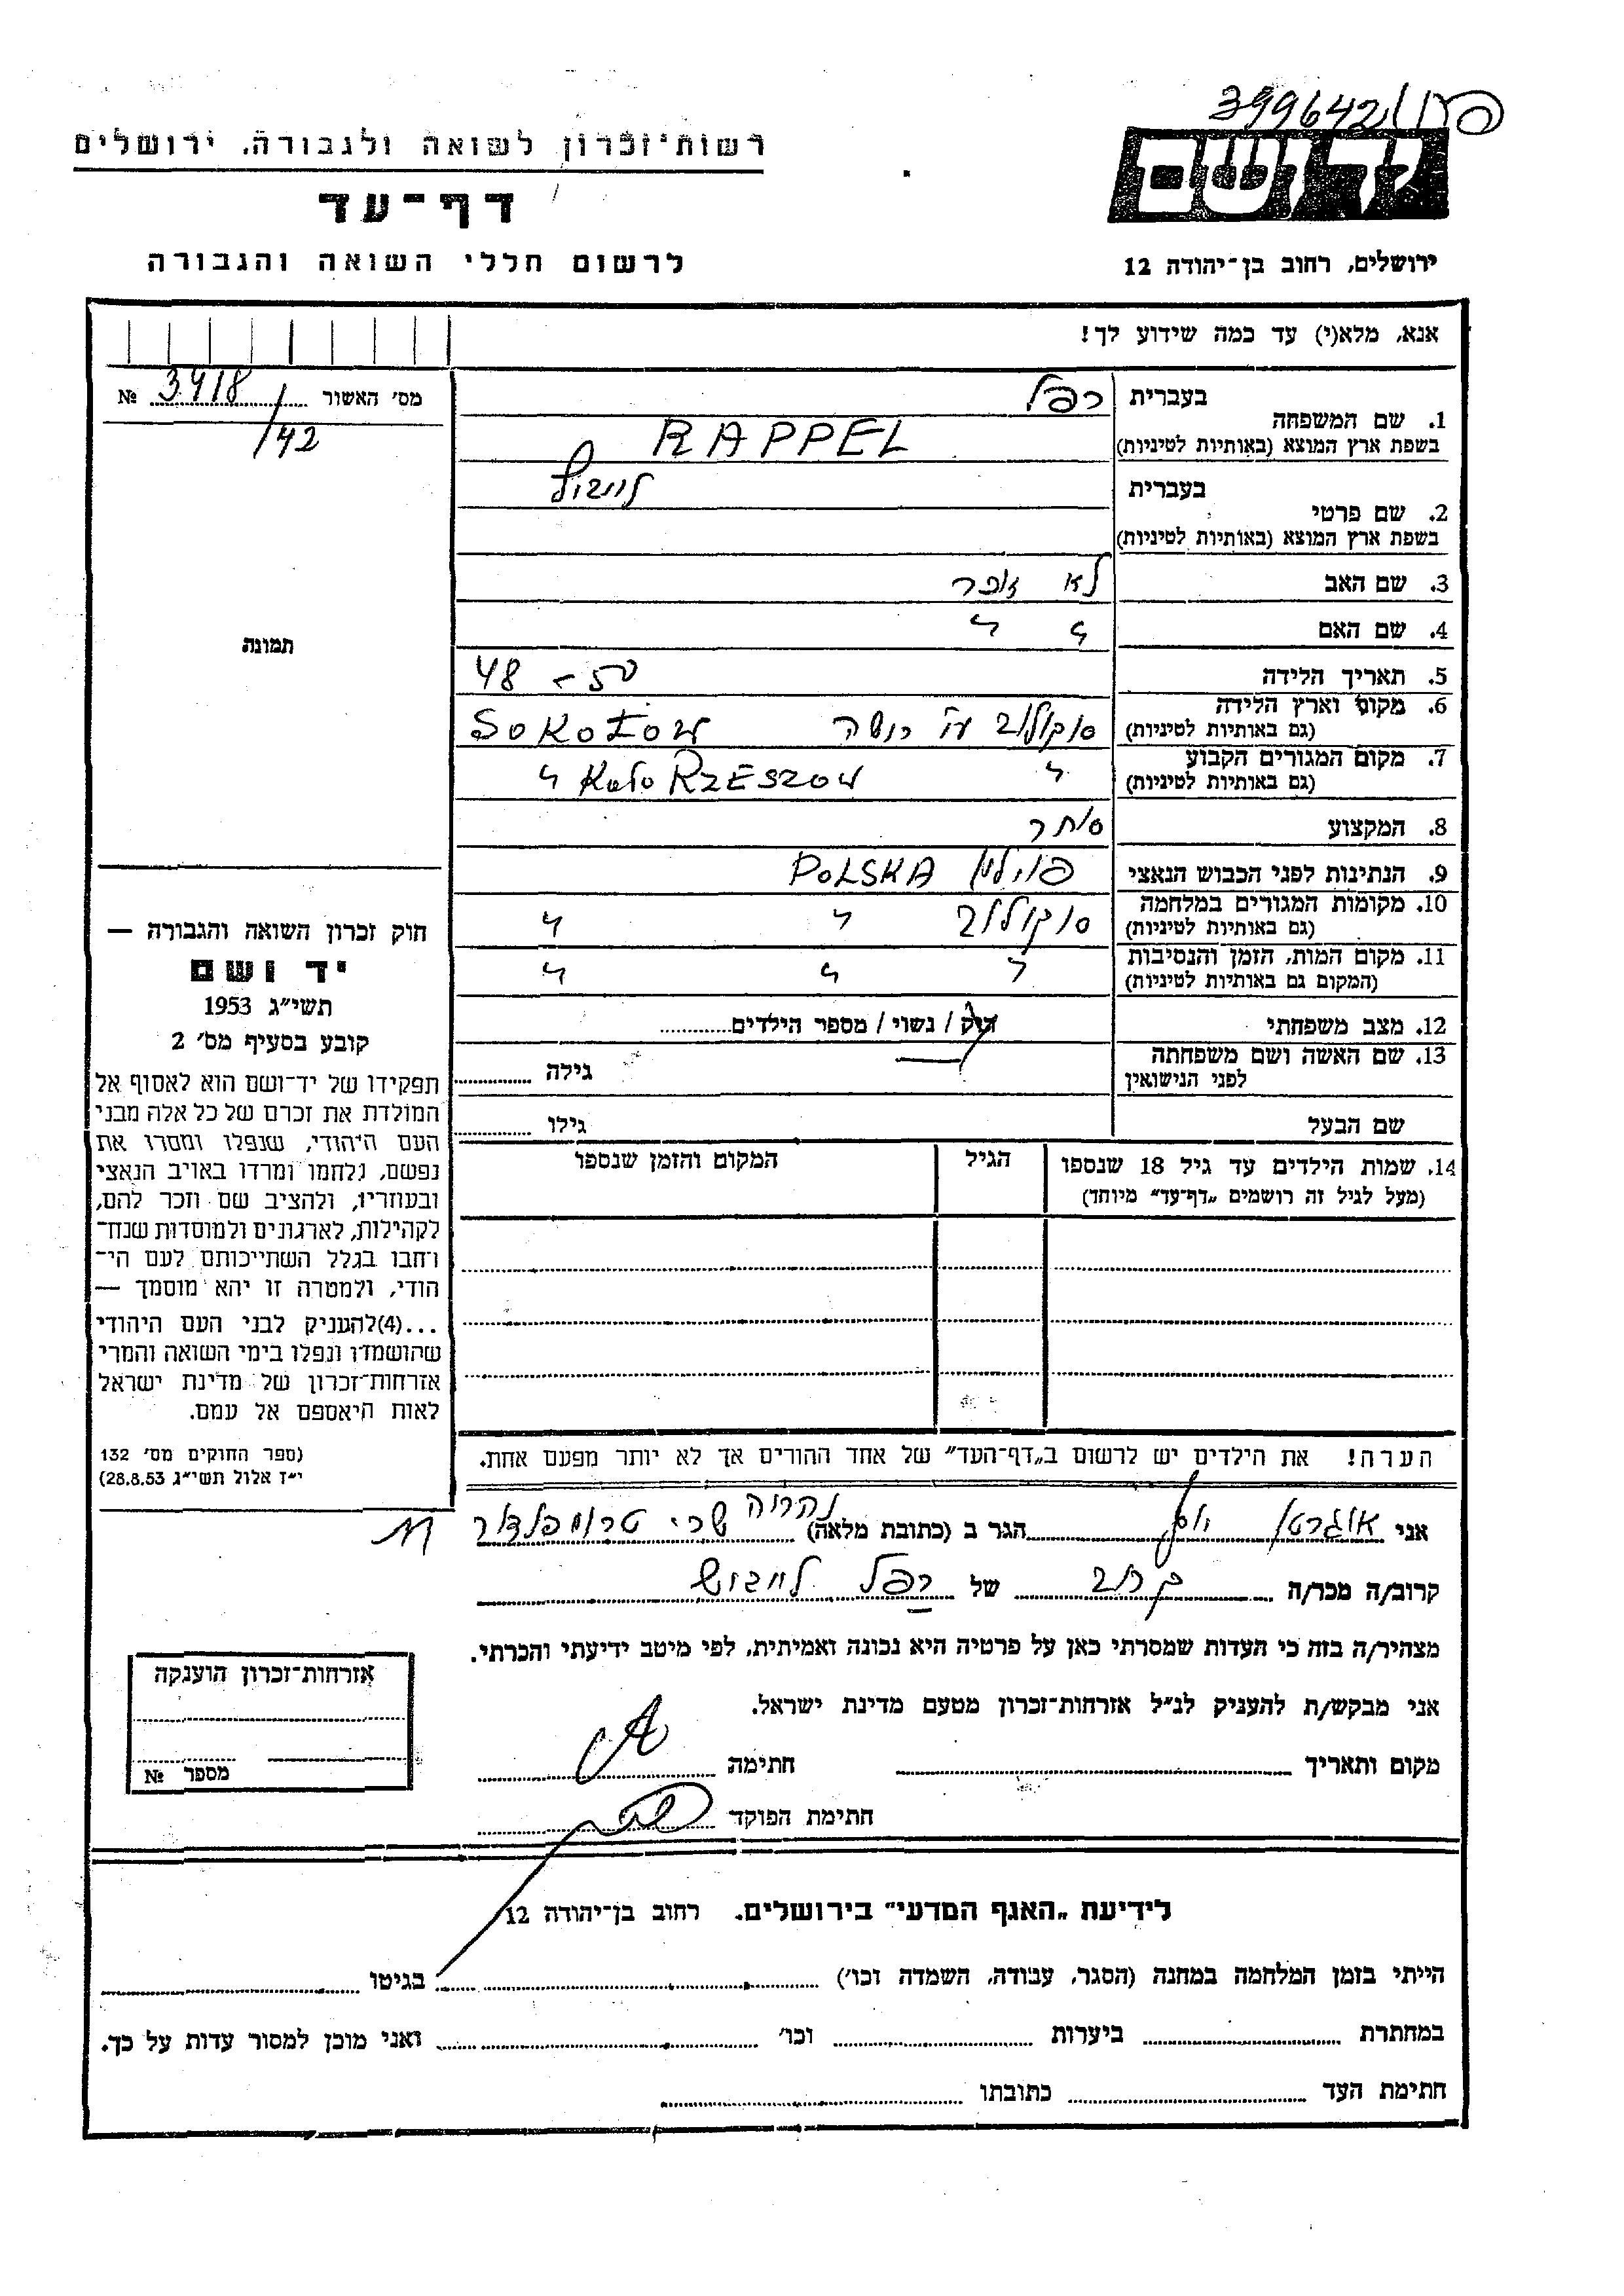 399642
רשות־זכרון לשואה ולגבורה, ירושלים
יד ושם
דף־עד
לרשום חללי השואה והגבורה
ירושלים, רחוב בן־יהודה 12
אנא, מלא(י) עד כמה שידוע לך!
מס׳ האשור 3418 №
/42
תמונה
בעברית רפל
1. שם המשפחה
בשפת ארץ המוצא (באותיות לטיניות) RAPPEL
בעברית
2. שם פרטי
בשפת ארץ המוצא (באותיות לטיניות)
3. שם האב לא
4. שם האם " "
5. תאריך הלידה 50 - 48
6. מקום וארץ הלידה
(גם באותיות לטיניות) סוקולוב SOKOŁOW
7. מקום המגורים הקבוע
(גם באותיות לטיניות) " RZESZOW "
8. המקצוע סוחר
9. הנתינות לפני הכבוש הנאצי פולין POLSKA
10. מקומות המגורים במלחמה
(גם באותיות לטיניות) סוקולוב " "
11. מקום המות, הזמן והנסיבות
(המקום גם באותיות לטיניות) " " "
12. מצב משפחתי רווק / נשוי / מספר הילדים
13. שם האשה ושם משפחתה
לפני הנישואין גילה
שם הבעל גילו
14. שמות הילדים עד גיל 18 שנספו
(מעל לגיל זה רושמים „דף־עד״ מיוחד)
הגיל
המקום והזמן שנספו
הערה! את הילדים יש לרשום ב„דף־העד״ של אחד ההורים אך לא יותר מפעם אחת.
חוק זכרון השואה והגבורה —
יד ושם
תשי״ג 1953
קובע בסעיף מס׳ 2
תפקידו של יד־ושם הוא לאסוף אל
המולדת את זכרם של כל אלה מבני
העם היהודי, שנפלו ומסרו את
נפשם, נלחמו ומרדו באויב הנאצי
ובעוזריו, ולהציב שם וזכר להם,
לקהילות, לארגונים ולמוסדות שנח־
רחבו בגלל השתייכותם לעם הי־
הודי, ולמטרה זו יהא מוסמך —
...(4)להעניק לבני העם היהודי
שהושמדו ונפלו בימי השואה והמרי
אזרחות־זכרון של מדינת ישראל
לאות היאספם אל עמם.
(ספר החוקים מס׳ 132
י״ז אלול תשי״ג 28.8.53)
אני הגר ב (כתובת מלאה) נהריה טרומפלדור
קרוב/ה מכר/ה קרוב של רפל לייבוש
מצהיר/ה בזה כי העדות שמסרתי כאן על פרטיה היא נכונה ואמיתית, לפי מיטב ידיעתי והכרתי.
אני מבקש/ת להעניק לנ״ל אזרחות־זכרון מטעם מדינת ישראל.
מקום ותאריך חתימה
חתימת הפוקד
אזרחות־זכרון הוענקה
מספר №
לידיעת „האגף המדעי״ בירושלים. רחוב בן־יהודה 12
הייתי בזמן המלחמה במחנה (הסגר, עבודה, השמדה וכו׳) בגיטו
במחתרת ביערות וכו׳ ואני מוכן למסור עדות על כך.
חתימת העד כתובתו